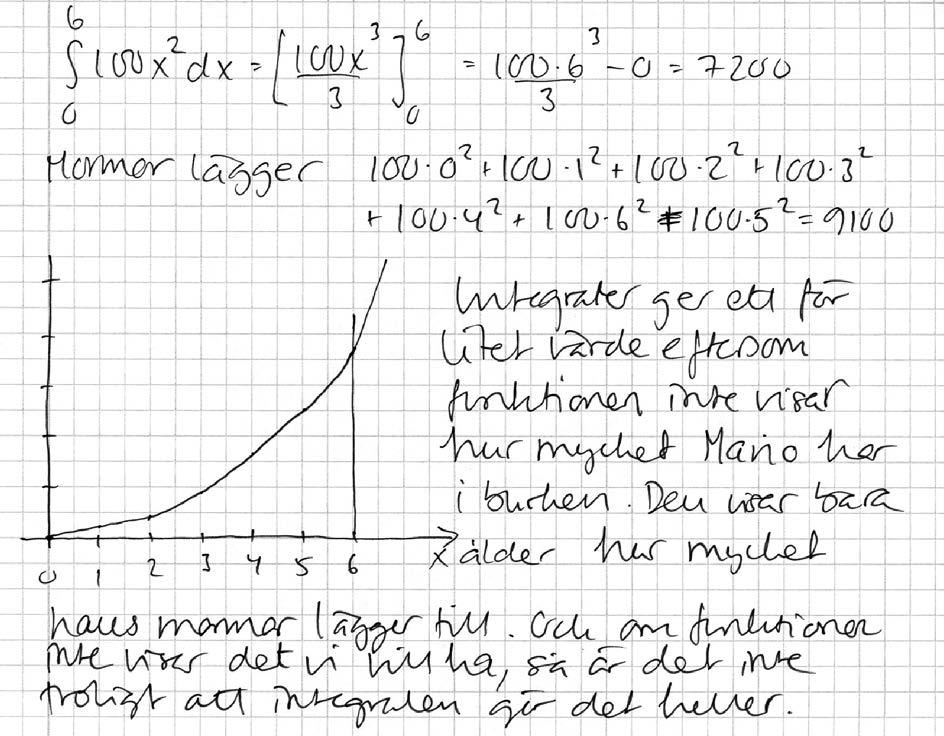 ∫₀⁶ 100x² dx = [100x³/3]₀⁶ = 100·6³/3 - 0 = 7200
Mormor lägger 100·0² + 100·1² + 100·2² + 100·3²
+ 100·4² + 100·6² + 100·5² = 9100
Integralen ger ett för
litet värde eftersom
funktionen inte visar
hur mycket Mario har
i burken. Den visar bara
x ålder hur mycket
0 1 2 3 4 5 6
hans mormor lägger till. Och om funktionen
inte visar det vi vill ha, så är det inte
troligt att integralen gör det heller.